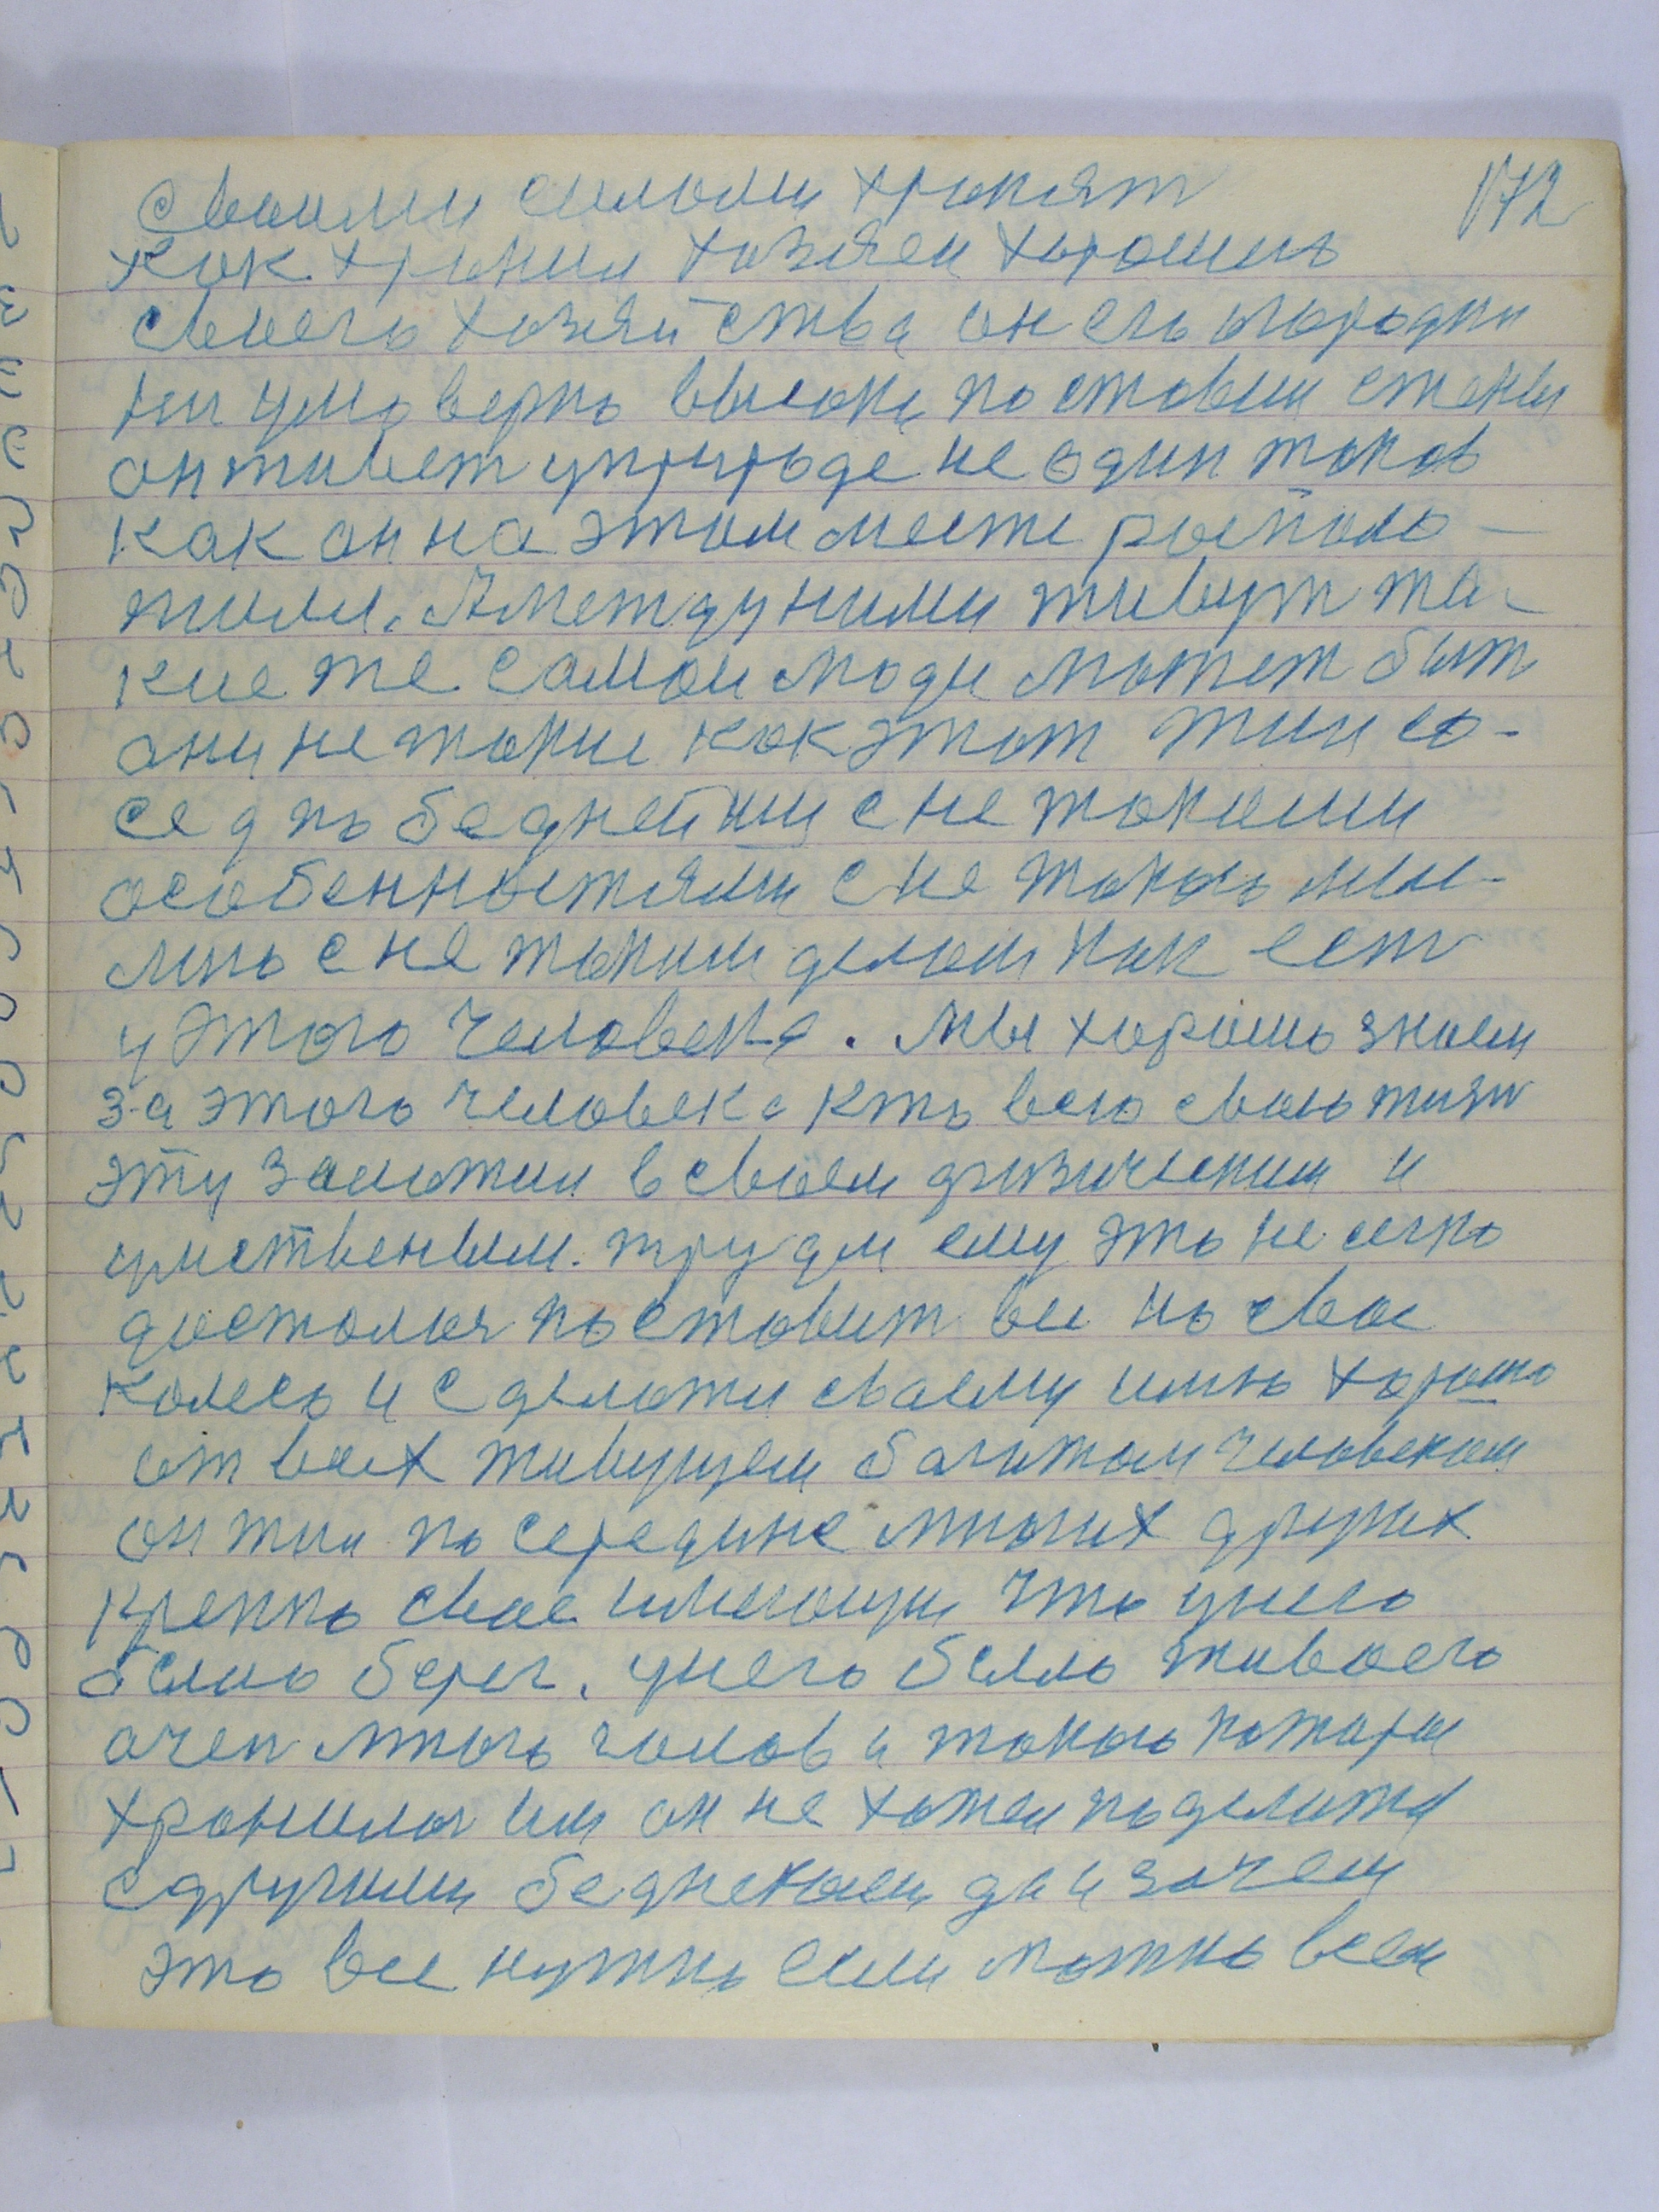 172
своими силами хранят
как хранил хозяен хорошего
своего хозяйства он его огородил
неимоверно высоко поставил стены
он живет у природе не один таков
как он на этом месте располо-
жили. А между ними живут та-
кие же самои люди может быт
они не такие как этот жил со-
сед по беднейший с не такими
особенностями с не такого
с не таким делом как ест
у этого человека. Мы хорошо знаем
за этого человека кто всю свою жизн
эту заложил в своем физическим и
умственным труде ему это не легко
досталося поставит все на свое
колесо и своему имю хорошо
от всех живущем багатом человеком
он жил по середине многих других
крепко свое имеющи что у него
было берег. у него было живоего
очен много голов и такого
хранилося им он не хотел поделится
с другими бедненкем да и зачем
это все нужно если можно всем